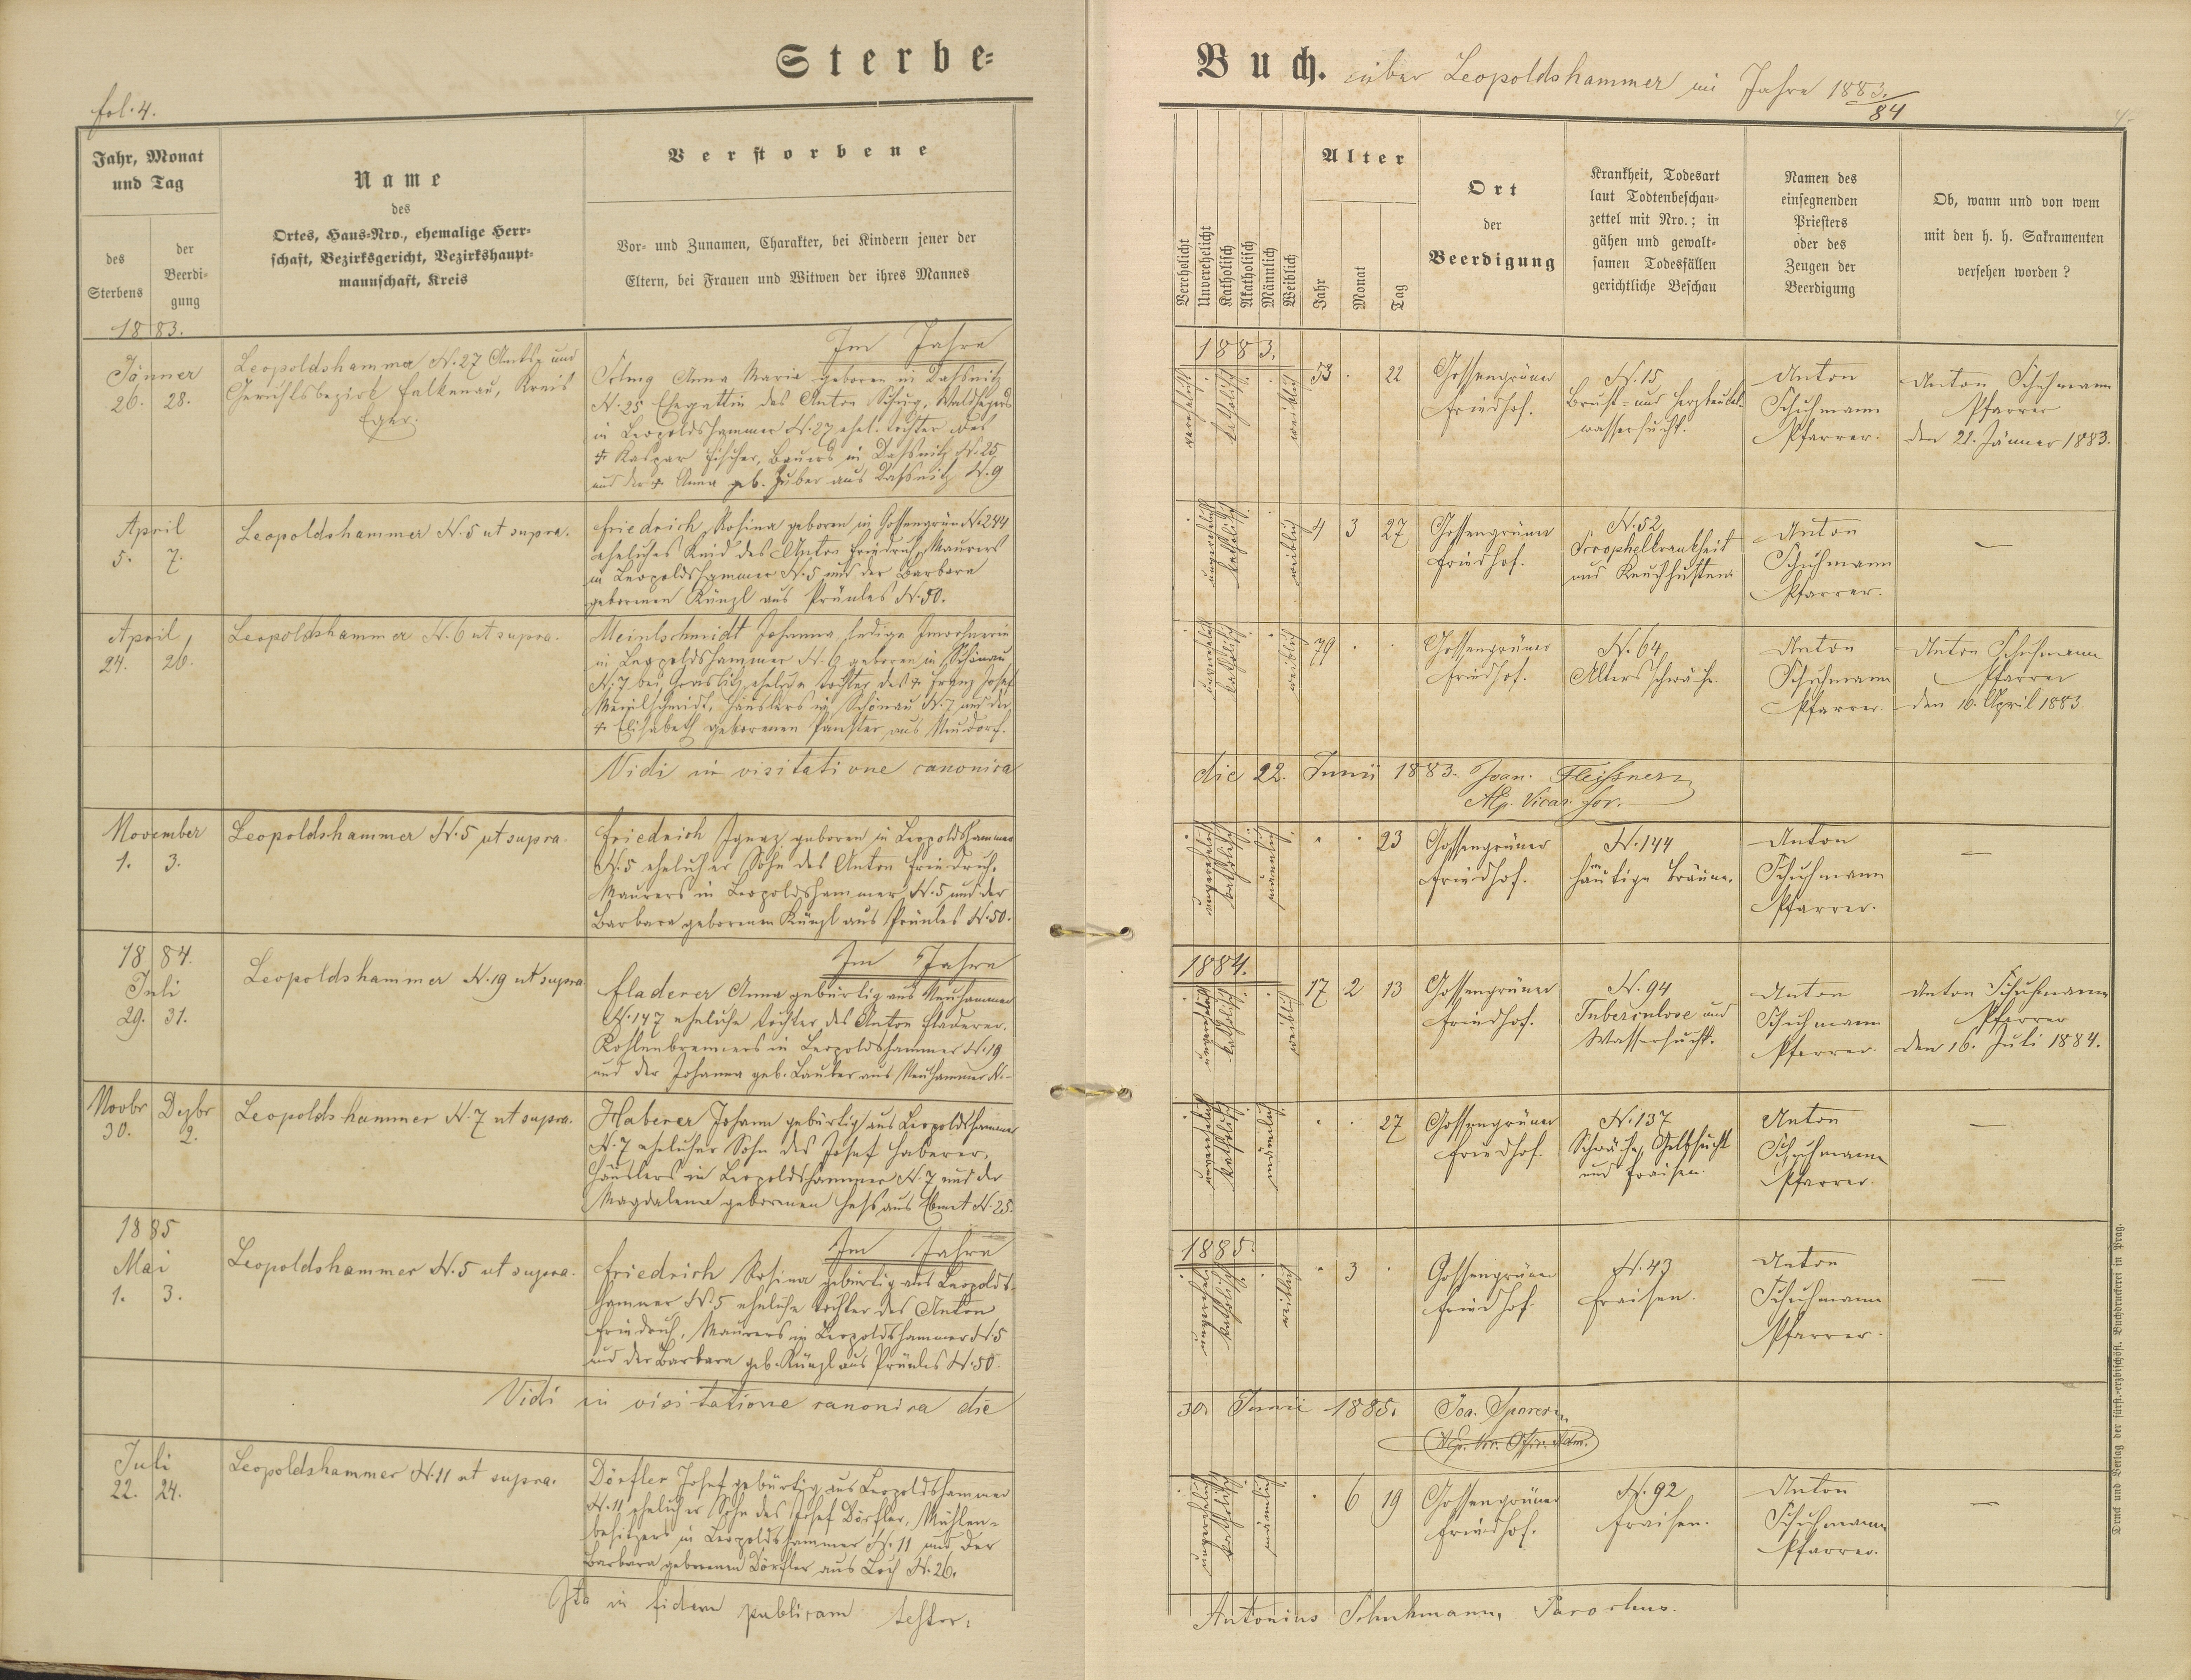 Sterbe-
fol. 4.
Jahr, Monat
und Tag
des
Sterbens
der
Beerdi-
gung
Name
des
Ortes, Haus-Nro., ehemalige Herr-
schaft, Bezirksgericht, Bezirkshaupt-
mannschaft, Kreis
Verstorbene
Vor- und Zunamen, Charakter, bei Kindern jener der
Eltern, bei Frauen und Witwen der ihres Mannes
1883.
Im Jahre
Jänner
26. 28.
Leopoldshammer N. 27 Amts- und
Gerichtsbezirk Falkenau, Kreis
Eger.
Anna Maria geboren in
N. 25 Ehegattin des Anton
in Leopoldshammer N. 27 ehel. Tochter des
† Kaspar Fischer, Bauers in N. 25
und der † Anna geb. Huber aus N. 9
April
5. 7.
Leopoldshammer N. 5 ut supra.
Friedrich, Rosina geboren in Gossengrün N. 244
eheliches Kind des Anton Friedrich, Maurers
in Leopoldshammer N. 5 und der Barbara
geborenen Künzl aus Prünles N. 50.
April
24. 26.
Leopoldshammer N. 6 ut supra.
Meinlschmidt Johanna, ledige Inwohnerin
in Leopoldshammer N. 6 geboren in Schönau
N. 7 bei Graslitz, eheliche Tochter des † Franz Josef
Meinlschmidt, Häuslers in Schönau N. 7 und der
† Elisabeth geborenen aus Neudorf.
Vidi in visitatione canonica
November
1. 3.
Leopoldshammer N. 5 ut supra.
Friedrich Ignaz, geboren in Leopoldshammer
N. 5 ehelicher Sohn des Anton Friedrich,
Maurers in Leopoldshammer N. 5 und der
Barbara geborenen Künzl aus Prünles N. 50.
1884.
Im Jahre
Juli
29. 31.
Leopoldshammer N. 19 ut supra
Fladerer Anna gebürtig aus Neuhammer
N. 147 eheliche Tochter des Anton Fladerer,
Kohlenbrenners in Leopoldshammer N. 19
und der Johanna geb. Lauber aus Neuhammer N. -
Novbr Dezbr
30. 2.
Leopoldshammer N. 7 ut supra.
Haberer Johann gebürtig aus Leopoldshammer
N. 7 ehelicher Sohn des Josef Haberer,
Häuslers in Leopoldshammer N. 7 und der
Magdalena geborenen Hess aus Ebmet N. 25.
1885
Im Jahre
Mai
1. 3.
Leopoldshammer N. 5 ut supra.
Friedrich Rosina gebürtig aus Leopolds-
hammer N. 5 eheliche Tochter des Anton
Friedrich, Maurers in Leopoldshammer N. 5
und der Barbara geb. Künzl aus Prünles N. 50.
Vidi in visitatione canonica die
Juli
22. 24.
Leopoldshammer N. 11 ut supra.
Dörfler Josef gebürtig aus Leopoldshammer
N. 11 ehelicher Sohn des Josef Dörfler, Mühlen-
besitzers in Leopoldshammer N. 11 und der
Barbara geborenen Dörfler aus Loch N. 26.
Ita in fidem publicam testor:
Buch. über Leopoldshammer im Jahre 1883./84
4.
Verehelicht
Unverehelicht
Katholisch
Akatholisch
Männlich
Weiblich
Alter
Jahr
Monat
Tag
Ort
der
Beerdigung
Krankheit, Todesart
laut Todtenbeschau-
zettel mit Nro.; in
gähen und gewalt-
samen Todesfällen
gerichtliche Beschau
Namen des
einsegnenden
Priesters
oder des
Zeugen der
Beerdigung
Ob, wann und von wem
mit den h. h. Sakramenten
versehen worden?
1883.
verehelicht katholisch weiblich 53 . 22
Gossengrüner
Friedhof.
N. 15
Brust- und Herzbeutel-
wassersucht.
Anton
Schuhmann
Pfarrer.
Anton Schuhmann
Pfarrer
den 21. Jänner 1883.
unverehelicht katholisch weiblich 4 3 27
Gossengrüner
Friedhof.
N. 52
Scrophelkrankheit
und Keuchhusten.
Anton
Schuhmann
Pfarrer.
—
unverehelicht katholisch weiblich 79 . .
Gossengrüner
Friedhof.
N. 64
Altersschwäche.
Anton
Schuhmann
Pfarrer.
Anton Schuhmann
Pfarrer
den 16. April 1883.
die 22. Junii 1883. Joan. Fleissner
Vicar. for.
unverehelicht katholisch männlich . . 23
Gossengrüner
Friedhof.
N. 144
häutige Bräune.
Anton
Schuhmann
Pfarrer.
—
1884.
unverehelicht katholisch weiblich 17 2 13
Gossengrüner
Friedhof.
N. 94
Tuberculose und
Wassersucht.
Anton
Schuhmann
Pfarrer.
Anton Schuhmann
Pfarrer
den 16. Juli 1884.
unverehelicht katholisch männlich . . 27
Gossengrüner
Friedhof.
N. 137
Schwäche, Gelbsucht
und Fraisen.
Anton
Schuhmann
Pfarrer.
—
1885.
unverehelicht katholisch weiblich . 3 .
Gossengrüner
Friedhof.
N. 43
Fraisen.
Anton
Schuhmann
Pfarrer.
—
30. Junii 1885.
unverehelicht katholisch männlich . 6 19
Gossengrüner
Friedhof.
N. 92
Fraisen.
Anton
Schuhmann
Pfarrer.
—
Antonius Schuhmann, Parochus.
Druck und Verlag der fürst.-erzbischöfl. Buchdruckerei in Prag.